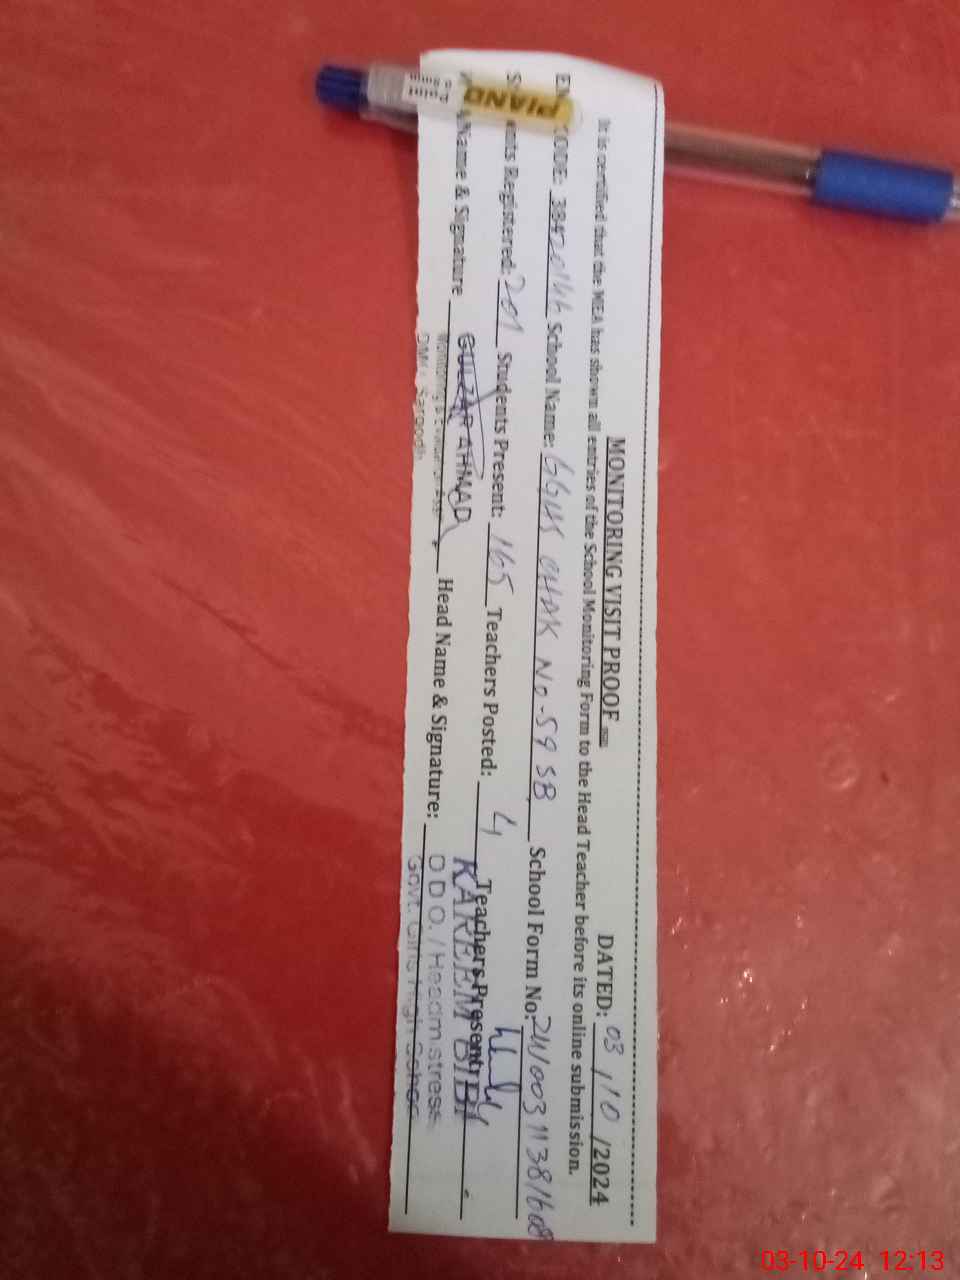 MONITORING VISIT PROOF
DATED: 03/10/2024
It is certified that the MEA has shown all entries of the School Monitoring Form to the Head Teacher before its online submission.
CODE: School Name: GGHS CHAK No-59 SB School Form No:
Registered: 201 Students Present: 165 Teachers Posted: 4 Teachers Present:
Name & Signature GULZAR AHMAD Head Name & Signature: KAREEM BIBI
D.D.O. / Headmistress
Govt. Girls High School
PIANO
03-10-24 12:13